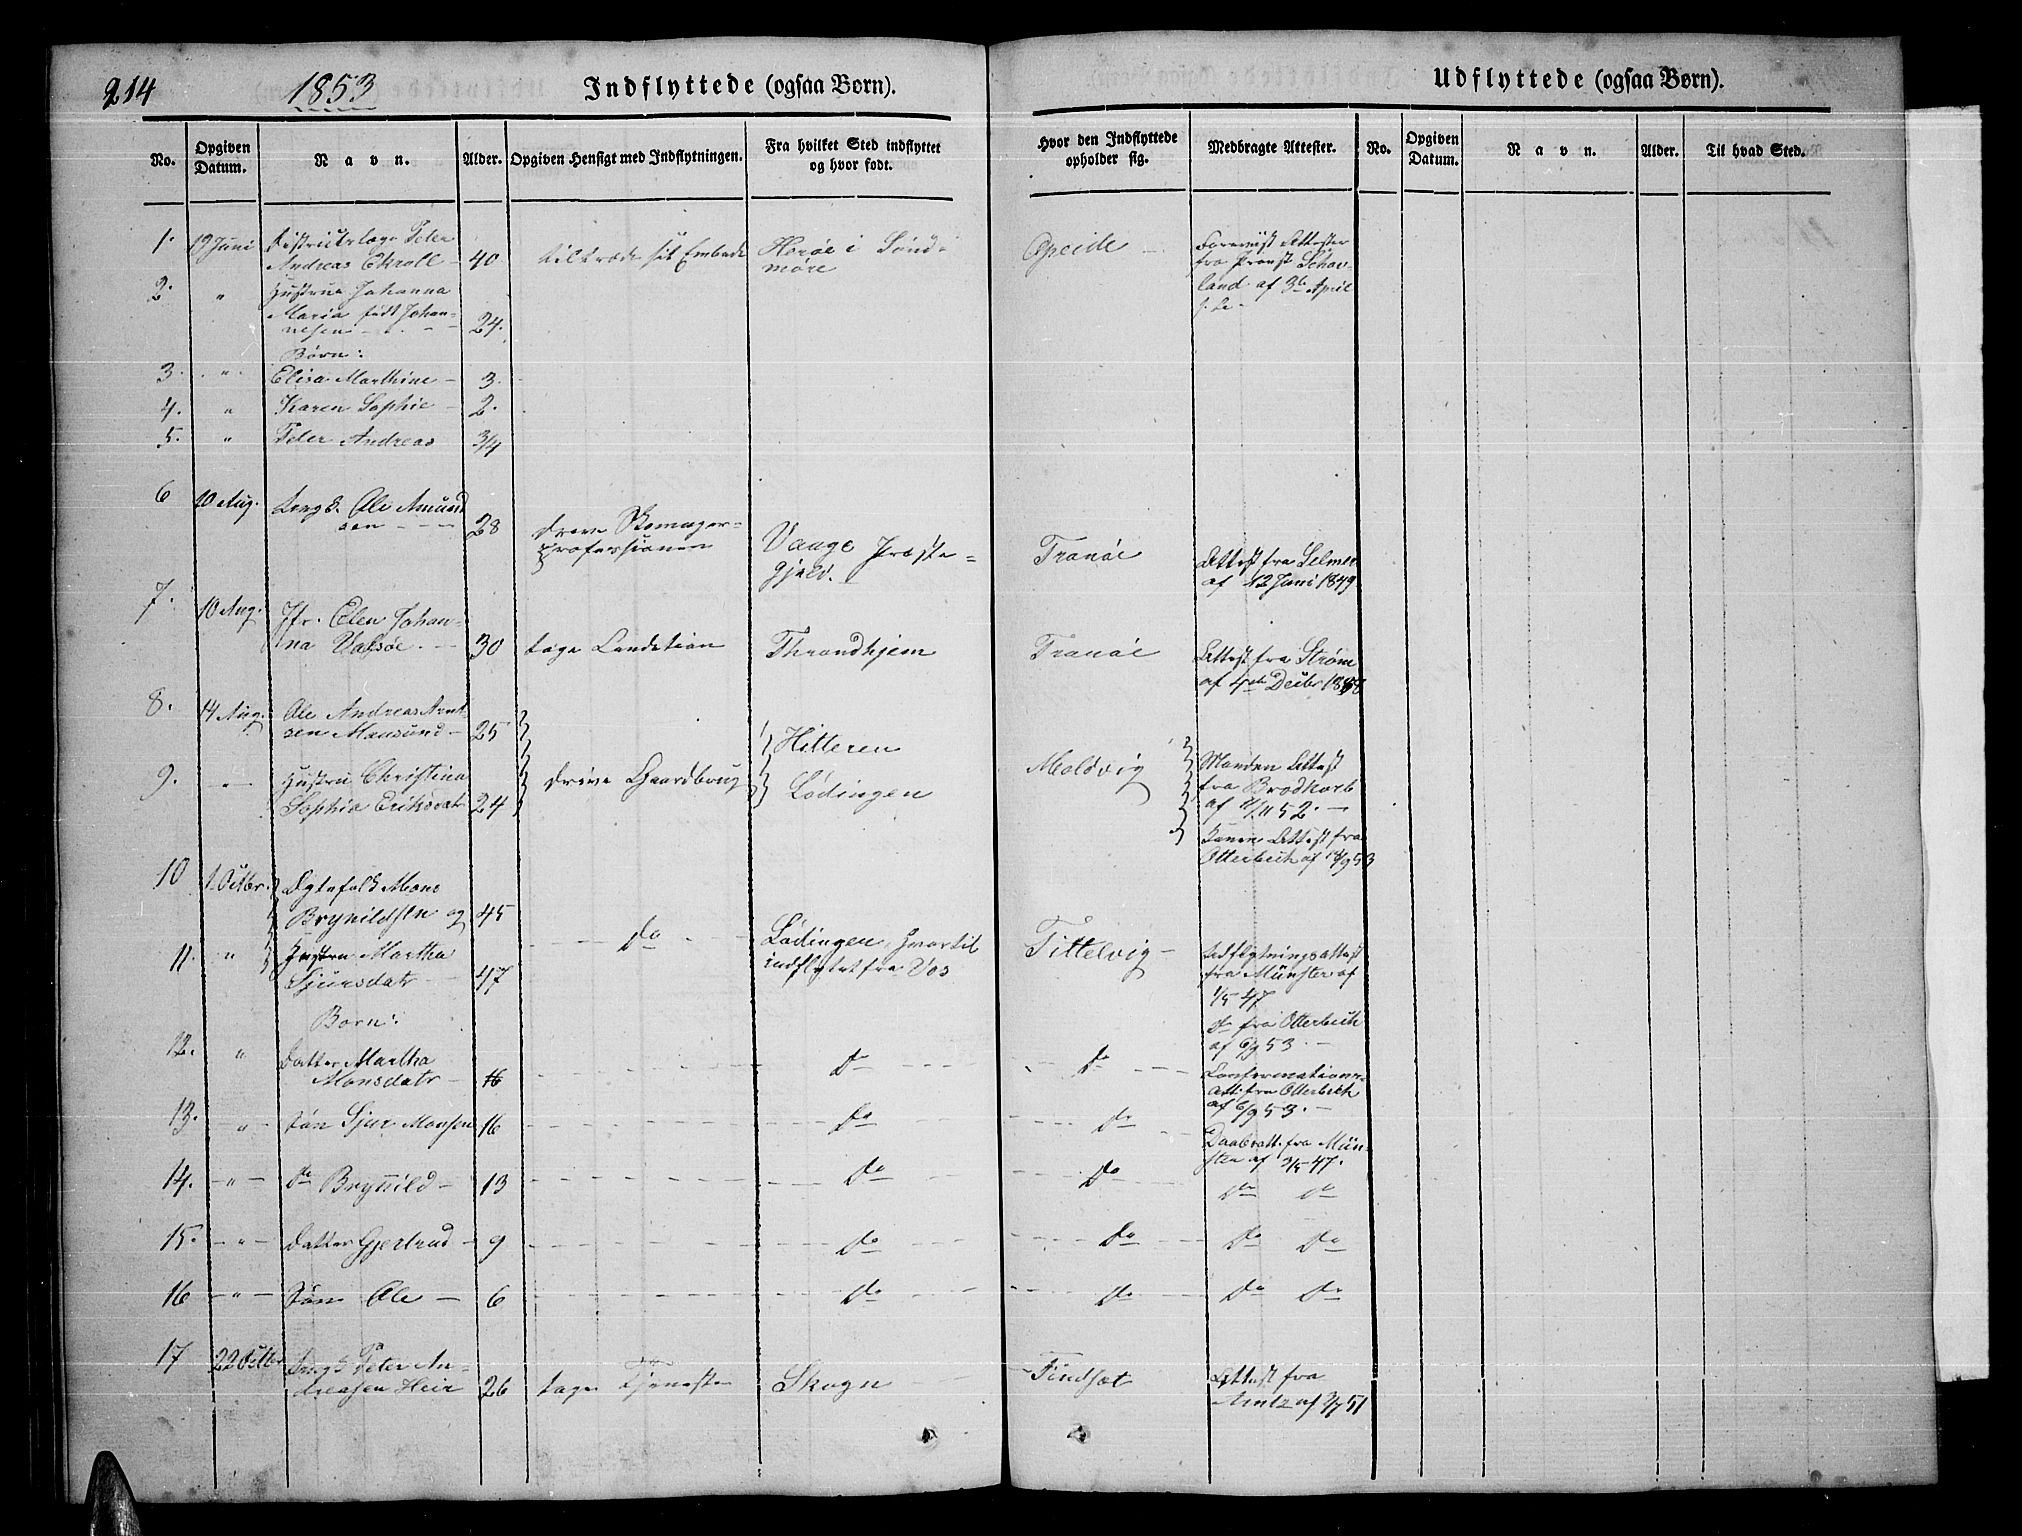 214 1853 Indflyttede (ogsaa Børn). Udflyttede (ogsaa Børn).
No. Opgiven Datum. Navn. Alder. Opgiven Hensigt med Indflytningen. Fra hvilket Sted indflyttet og hvor født. Hvor den Indflyttede opholder sig. Medbragte Attester. No. Opgiven Datum. Navn. Alder. Til hvad Sted.
1. 12 Juni Districtslæge Peter Herøe i Sønd- Opeide
Andreas Ekroll 40 tiltræde sit Embede møre fra Provst
2. " Hustrue Johanna land af April
Maria født Johan-
nesen 24.
Børn:
3. " Elisa Marthine 3.
4. " Karen Sophie 2.
5. " Peter Andreas 3/4
6 10 Aug. Ungk. Ole Amund
sen 28 drive Skomager- Vaage Præste- Tranøe Attest fra Selmer
professionen gjeld. af 12 Juni 1849
7. 10 Aug. Jfr. Elen Johan-
na Valsøe 30 tage Condition Throndhjem Tranøe Attest fra Strøm
af 4de Decbr
8. 14 Aug. Ole Andreas Arnt-
sen Mausund 25 Hitteren Manden Attest
9. " Hustru Christina drive Gaardbrug Moldvig fra Brodkorb
Sophia Eriksdatr 24 Lødingen af 11/11 52.
Konen Attest fra
Otterbech af 53
10 1 Octbr. Ægtefolk Mons
Brynildsen og 45
11. " Hustru Martha do Lødingen, hvortil Tittelvig Udflytningsattest
Sjursdatr 47 indflyttet fra Vos fra Münster af
1/5 47
Børn: do fra Otterbech
12. " Datter Martha do do af 6/9 53.
Monsdatr 16 Confirmations-
att. fra Otterbech
13. " Søn Sjur Monsen 16 do do af 6/9 53.
Daabsatt. fra Mün-
14. " do Brynild 13 do do ster af 3/5 47.
do do
15. " Datter Gjertrud 9 do do do do
16 " Søn Ole 6 do do do do
17 22 Octbr Ungk Peter An-
dreasen Heir 26 tage Tjeneste Skogn Findsæt Attest fra
Arntz af 51